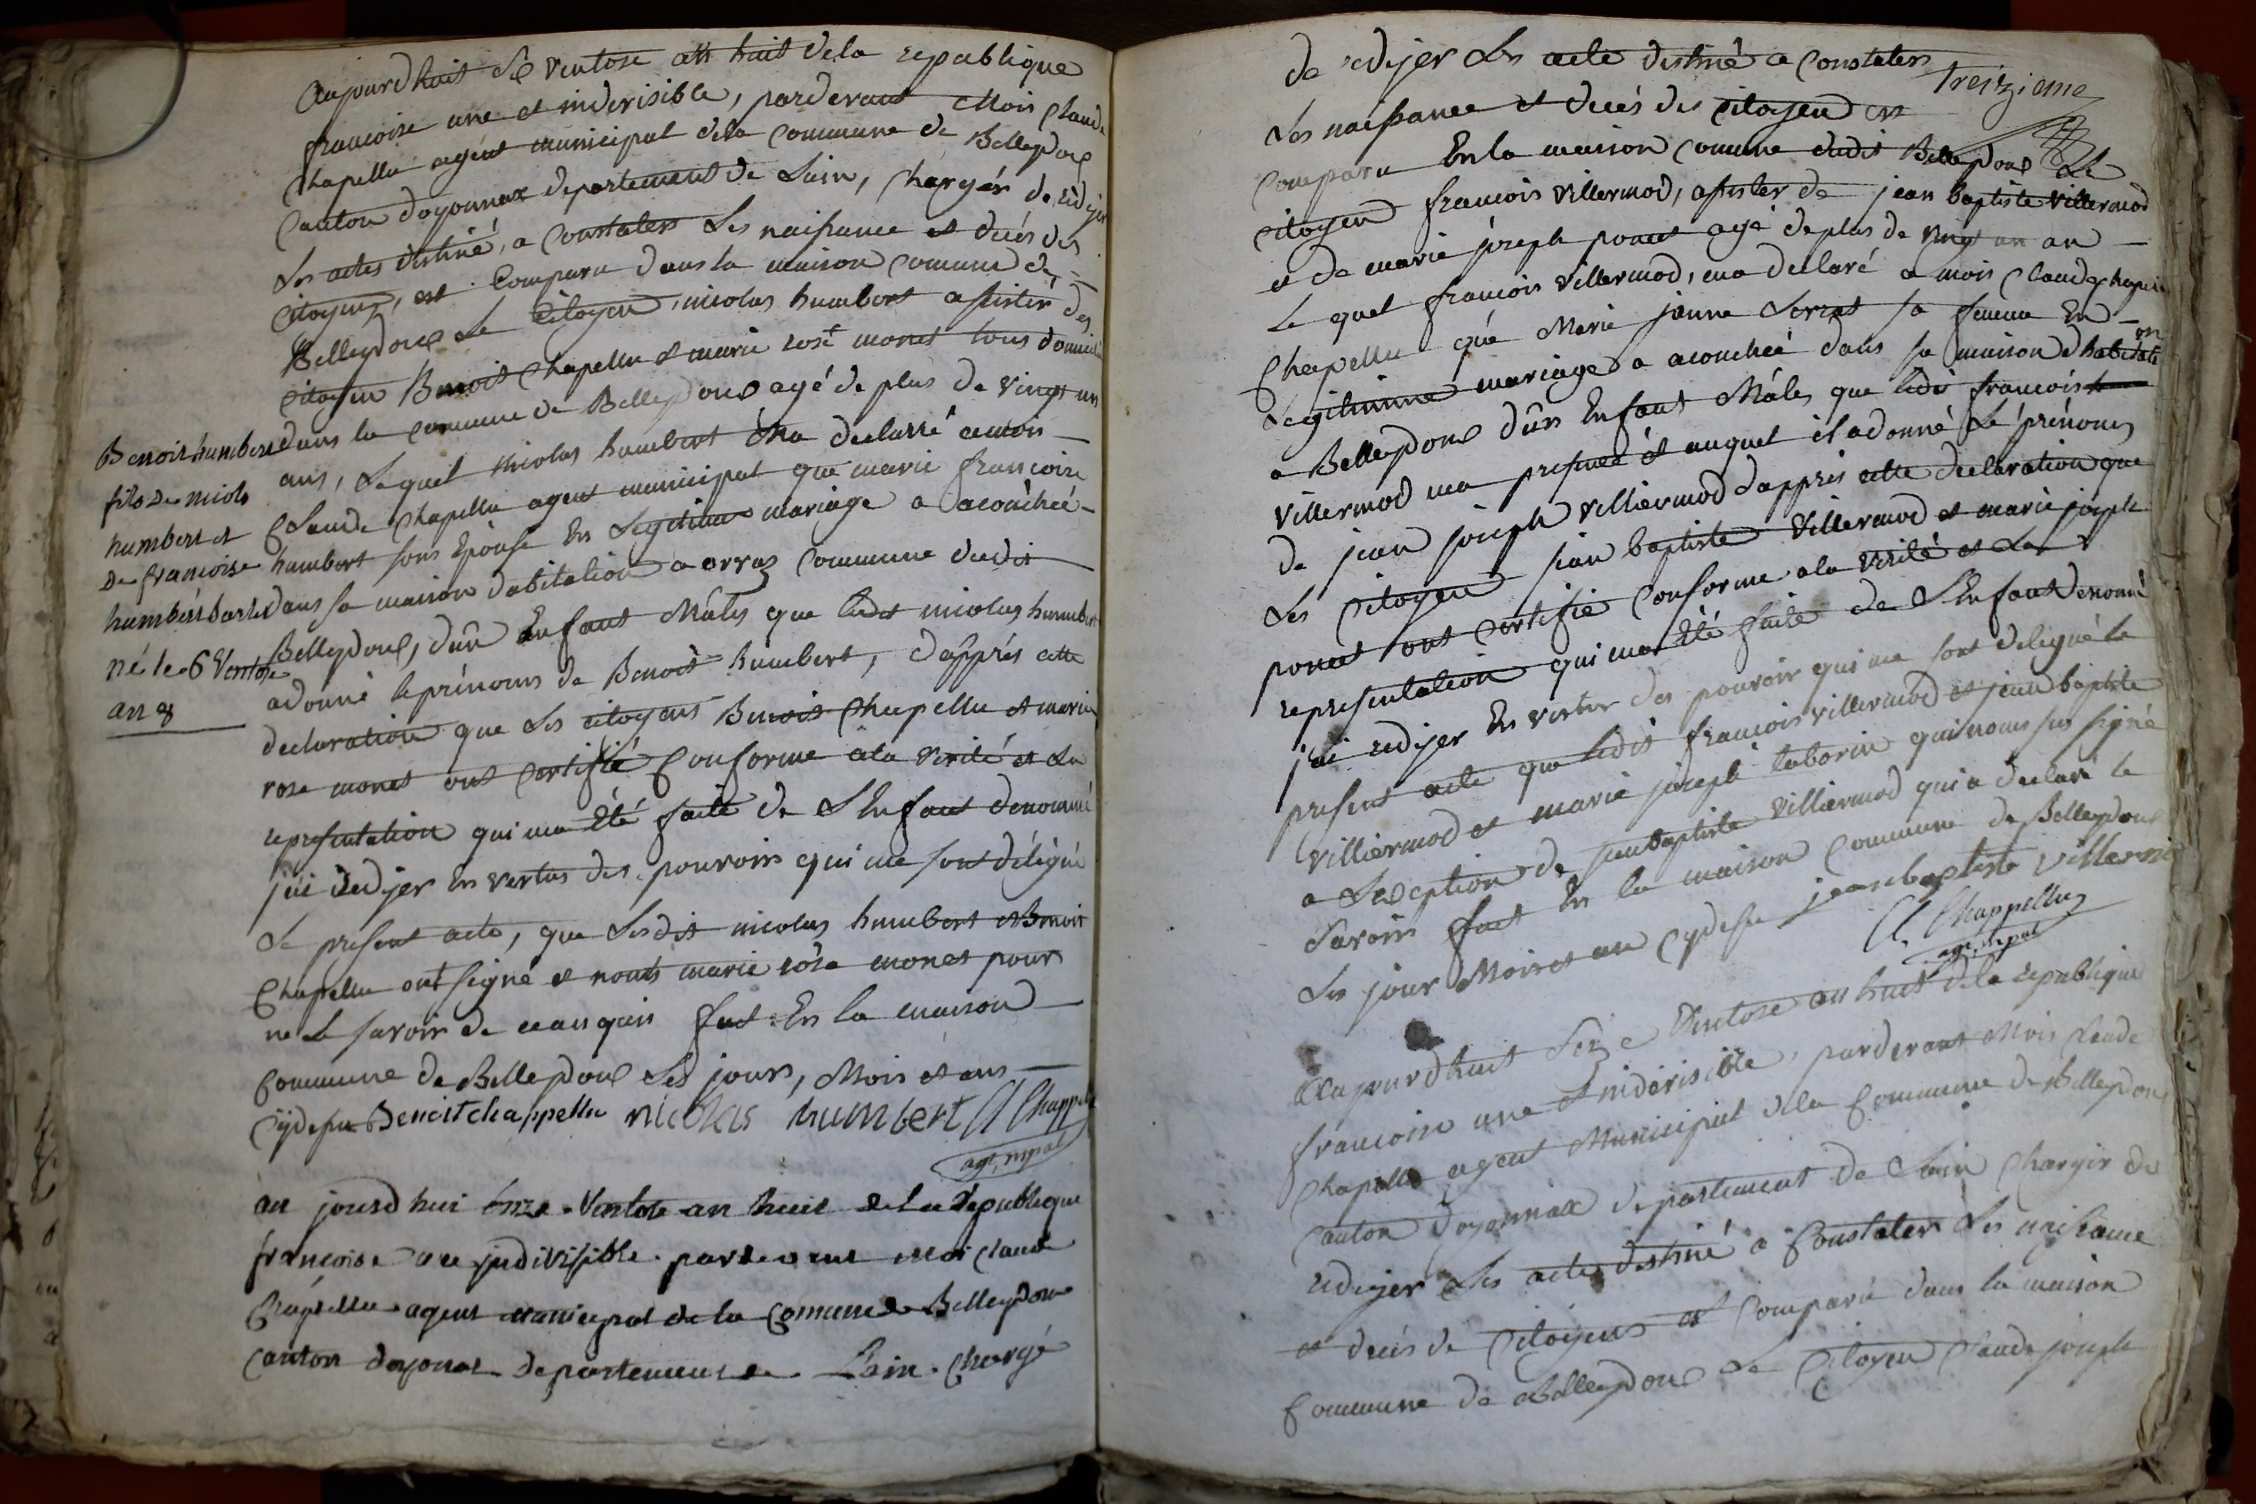 Aujourdhuit six ventose an huit dela republique
francoise une et indivisible, pardevant Mois Claude
Chapellu agent municipal dela Commune de Belleydoux
Canton doyonnax departement de Lain, Charger de redijer
Les actes distiné, a Constater Les naissance et decés des
Citoyens, est Comparu dans la maison Comune de
Belleydoux Le Citoyen nicolas humbert assister des
Citoyen Benoit Chapellu et marie rose monet tous domicilié
dans la Commune de Belleydoux agé de plus de vingt un
ans, Lequel nicolas humbert Ma declarré a mois
Claude Chapellu agent municipal que marie francoise
humbert sons Epouse En Legitime mariage a acouchée
dans sa maison dabitation a orvaz Commune dudit
Belleydoux, dûn Enfant Mâles que Ledit nicolas humbert
adonné le prénoms de Benoit humbert, dapprés cette
declaration que Les citoyens Benoit Chapellu et marie
rose monet ont Certifié Conforme ala verité et La
representation qui ma Eté faite de LEnfant denommé
jai Redijer En vertus des pouvoirs qui me sont délégué
Le present acte, que Lesdit nicolas humbert et Benoit
Chapellu ont signé et nonts marie rose monet pour
ne Le savoir de ce anquis fait En la maison
Commune de Belleydoux Les jours, Mois et ans
Cydessu Benoit chappellu nicolas humbert Cl Chappellu
agt, mpal
Benoit humbert
fils de nicolas
humbert et
De francoise
humbert barbe
né le 6 Ventose
an 8
au jourdhui onze Ventose an huit de La Republique
francoise une indivisible pardevant moi Claude
Chapellu agent municipal de la Comune de Belleydoux
canton doyonax departement de Lain Chargé
de redijer Les acte destiné a Constater
Treizieme
Les naissance et decés des Citoyens est
Comparu En la maison Comune dudit Belleydoux Le
Citoyen francois Villermod, assister de jean baptiste Villermod
et de marie joseph poncet agé de plus de vingt un an
Le quel francois Villermod, ma declaré a mois Claude
Chapellu que Marie janne sa femme En
Legitimme mariage a acouchée dans sa maison dhabitation
a Belleydoux dûn Enfant Mâles que ledit francois
Villermod ma presentée et auquel il adonné Le prénoms
de jean joseph Villiermod dapprés cette declaration que
Les Citoyen jean baptiste Villermod et marie joseph
poncet ont Certifié Conforme ala Verité et La
representation qui ma Eté faite de LEnfant denommé
jai redijer En vertus des pouvoir qui me sont delegué le
present acte que Ledit francois Villermod et jean baptiste
Villiermod et marie joseph qui nous sus signé
a LExeption de jeanbaptiste Villiermod qui a declaré le
savoirs fait En la maison Commune de Belleydoux
Les jour Mois et an Cydessu jean baptiste
Cl. Chappellu
agt, mpal
Aujourdhuit Seize Ventose an huit dela republique
francoise une et indivisible, pardevant Mois Claude
Chapellu agent Municipal dela Commune de Belleydoux
Canton doyonnax departement de Lain Charger de
redijer Les actes destiné a Constater Les naissance
et decés de Citoyens est Comparu dans la maison
Commune de Belleydoux Le Citoyen Claude joseph